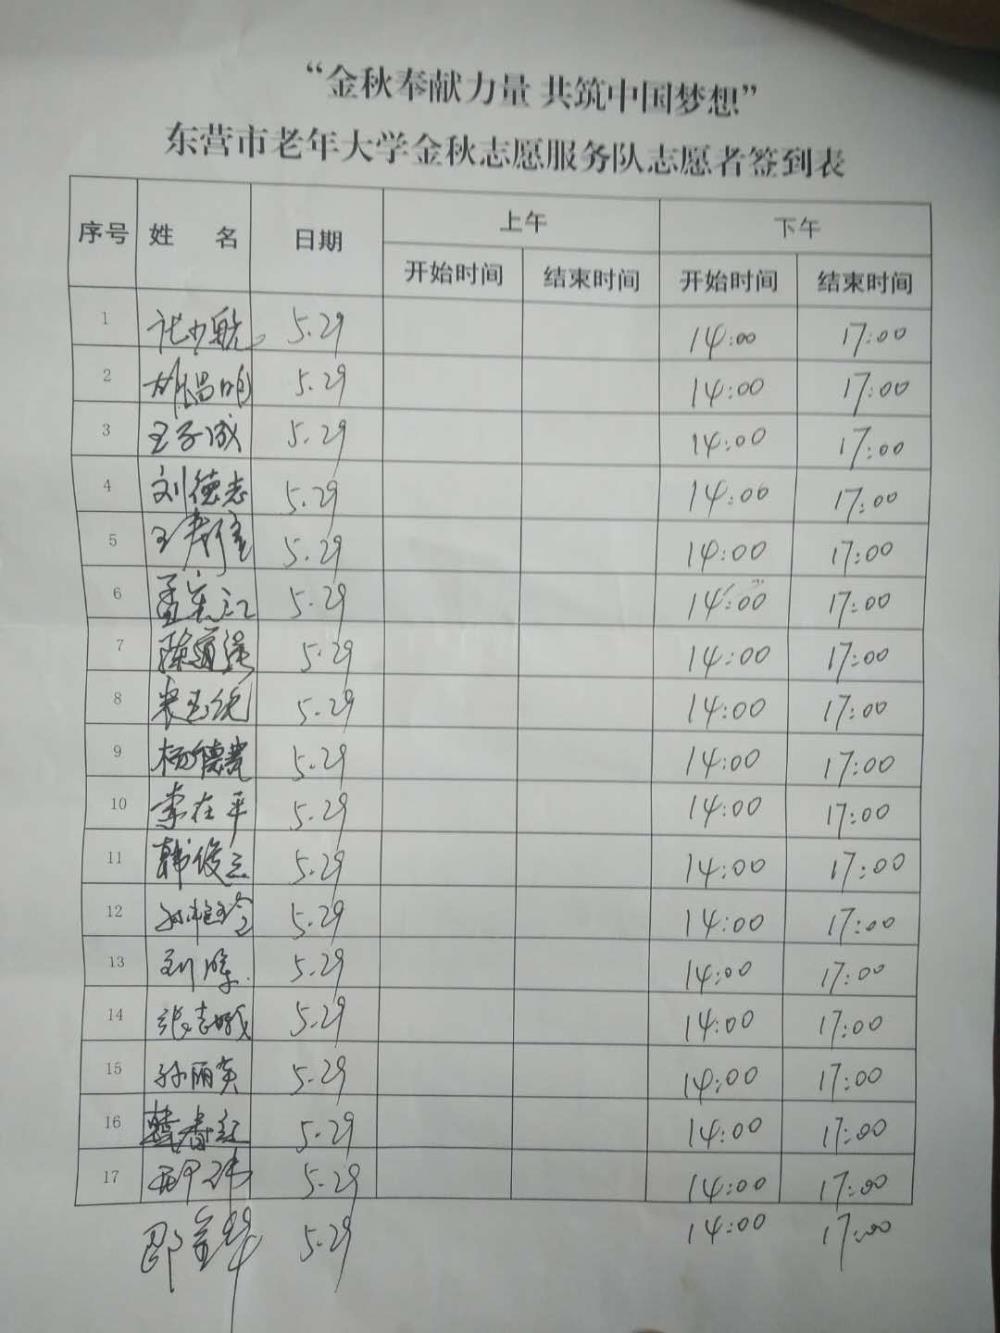 “金秋奉献力量 共筑中国梦想”
东营市老年大学金秋志愿服务队志愿者签到表
序号 姓 名 日期 上午 下午
开始时间 结束时间 开始时间 结束时间
1 5.29 14:00 17:00
2 5.29 14:00 17:00
3 王子成 5.29 14:00 17:00
4 刘德志 5.29 14:00 17:00
5 王 5.29 14:00 17:00
6 孟宪江 5.29 14:00 17:00
7 陈道强 5.29 14:00 17:00
8 5.29 14:00 17:00
9 杨德贵 5.29 14:00 17:00
10 李在平 5.29 14:00 17:00
11 韩俊三 5.29 14:00 17:00
12 5.29 14:00 17:00
13 5.29 14:00 17:00
14 张志 5.29 14:00 17:00
15 孙丽英 5.29 14:00 17:00
16 韩春红 5.29 14:00 17:00
17 5.29 14:00 17:00
邵金华 5.29 14:00 17:00